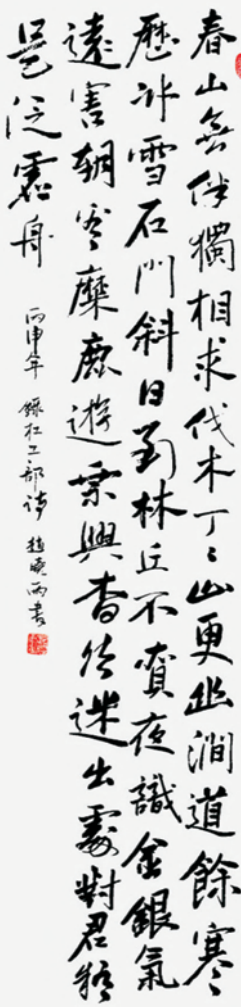 春山無伴獨相求伐木丁丶山更幽澗道餘寒
歷冰雪石門斜日到林丘不貪夜識金銀氣
遠害朝看麋鹿遊乘興杳然迷出處對君疑
是泛虛舟
丙申年 錄杜工部詩 趙曉丙書